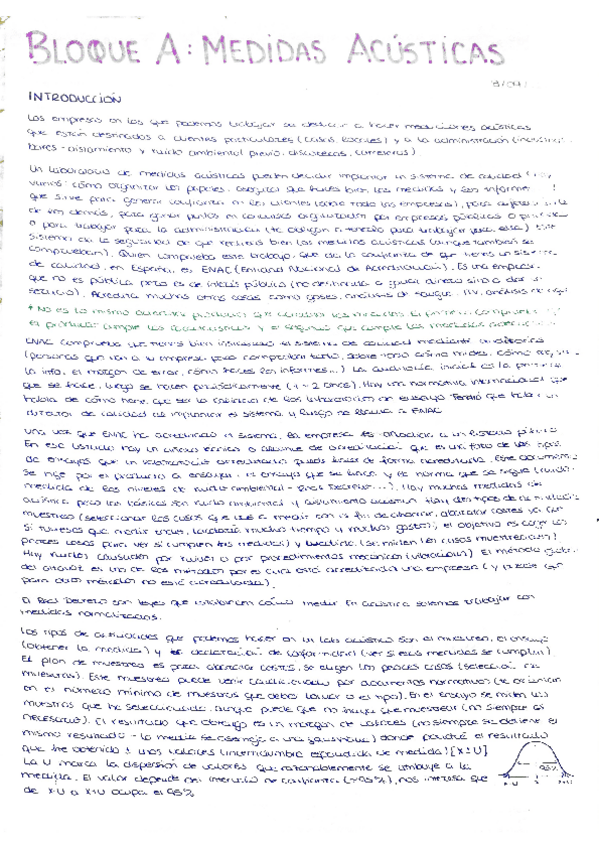 BLOQUE A: MEDIDAS ACÚSTICAS
INTRODUCCIÓN
Las empresas en las que podemos trabajar se dedican a hacer mediciones acústicas
que están destinados a clientes particulares (casas, locales) y a la administración
bares - aislamiento y ruido ambiental previo, discotecas, carreteras)
Un laboratorio de medidas acústicas puede decidir implantar un sistema de calidad
cómo organizar los papeles, asegurar que haces bien las medidas y los informes
que sirve para generar confianza a los clientes (sobre todo las empresas), para
de los demás, para ganar puntos en concursos organizados por empresas públicas o
o para trabajar para la administración (te obligan a tenerlo para trabajar para ella)
sistema da la seguridad de que realizas bien las medidas acústicas (aunque también se
comprueban). Quien comprueba este trabajo, que da la confianza de que tienes un
de calidad, en España, es ENAC (Entidad Nacional de Acreditación). Es una empresa
que no es pública pero es de interés público (no destinada a ganar dinero sino a dar
servicio). Acredita muchas otras cosas como gases, análisis de sangre, ITV, análisis de
* No es lo mismo
el producto cumple los requisitos y el segundo que cumple las medidas
ENAC comprueba que tienes bien implantado el sistema de calidad mediante auditorías
(personas que van a tu empresa para comprobarlo todo, sobre todo cómo mides, cómo
la info, el margen de error, cómo haces los informes...) La auditoría inicial es la primera
que se hace, luego se hacen periódicamente (1-2 años). Hay una normativa internacional que
habla de cómo tiene que ser la calidad de los laboratorios de ensayo. Tendrá que haber un
de calidad de implantar el sistema y luego se llama a ENAC
Una vez que ENAC ha acreditado el sistema, la empresa es añadida a un listado público
En ese listado hay un anexo técnico o alcance de acreditación que es una foto de los tipos
de ensayos que un laboratorio acreditado puede hacer de forma acreditada. Este documento
se rige por el producto a ensayar, el ensayo que se hace y la norma que se sigue (ruido,
medida de los niveles de ruido ambiental - Real Decreto...). Hay muchas medidas en
acústica pero las básicas son ruido ambiental y aislamiento acústico. Hay dos tipos de
muestreo (seleccionar los casos que voy a medir con el fin de ahorrar, abaratar costes ya que
si tuvieras que medir todas, tardarías mucho tiempo y muchos gastos), el objetivo es coger los
peores casos para ver si cumplen las medidas) y medida (se miden los casos muestreados)
Hay ruidos causados por ruidos o por procedimientos mecánicos (vibraciones). El método
del anexo es uno de los métodos por el cual está acreditada una empresa (y puede que
para otros métodos no esté acreditada).
El Real Decreto son leyes que establecen cómo medir. En acústica solemos trabajar con
medidas normalizadas.
Los tipos de actividades que podemos hacer en un lab acústico son el muestreo, el ensayo
(obtener la medida) y la declaración de conformidad (ver si esas medidas se cumplen)
El plan de muestreo es para abaratar costes, se eligen los peores casos (selección de
muestras). Este muestreo puede venir condicionado por documentos normativos (te orientan
en el número mínimo de muestras que debes tomar o el tipo). En el ensayo se miden las
muestras que ha seleccionado, aunque puede que no haya que muestrear (no siempre es
necesario). El resultado que obtengo es un margen de valores (no siempre se obtiene el
mismo resultado - la media se asemeja a una gaussiana) donde pondré el resultado
que he obtenido ± unos valores (incertidumbre expandida de medida) [X±U]
La U marca la dispersión de valores que razonablemente se atribuye a la
medida. El valor depende del intervalo de confianza (≈95%), nos interesa que
de x-U a x+U ocupa el 95%
95%